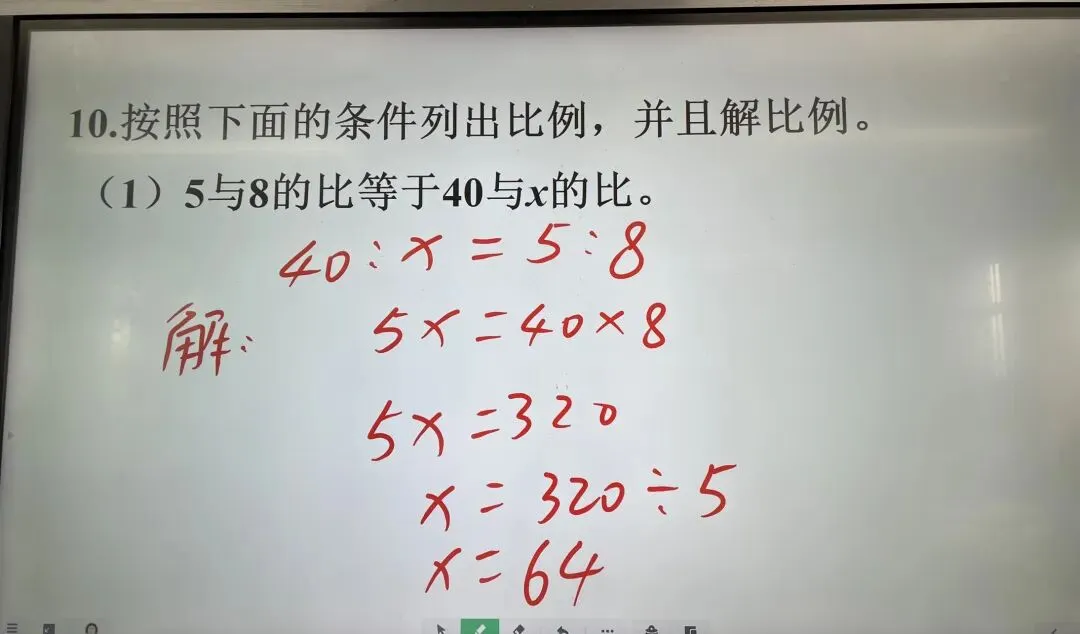 10.按照下面的条件列出比例，并且解比例。
（1）5与8的比等于40与x的比。
40:x=5:8
解: 5x=40×8
5x=320
x=320÷5
x=64